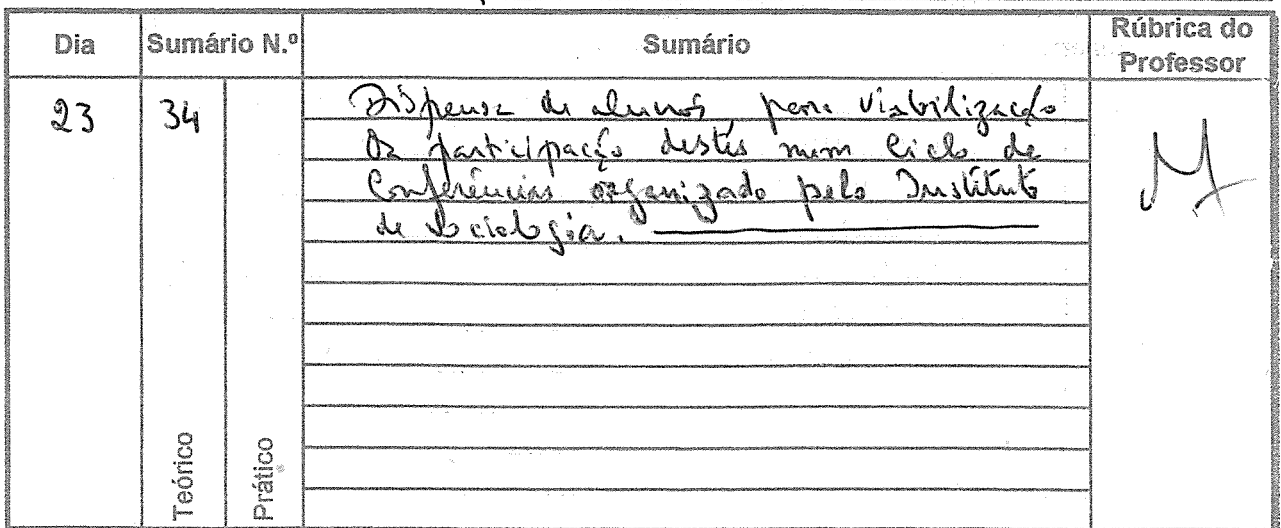 Dia Sumário N.º Sumário Rúbrica do Professor
23 34
Dispensa de alunos, para viabilização
da participação destes num Ciclo de
Conferências organizado pelo Instituto
de Sociologia.
Teórico
Prático